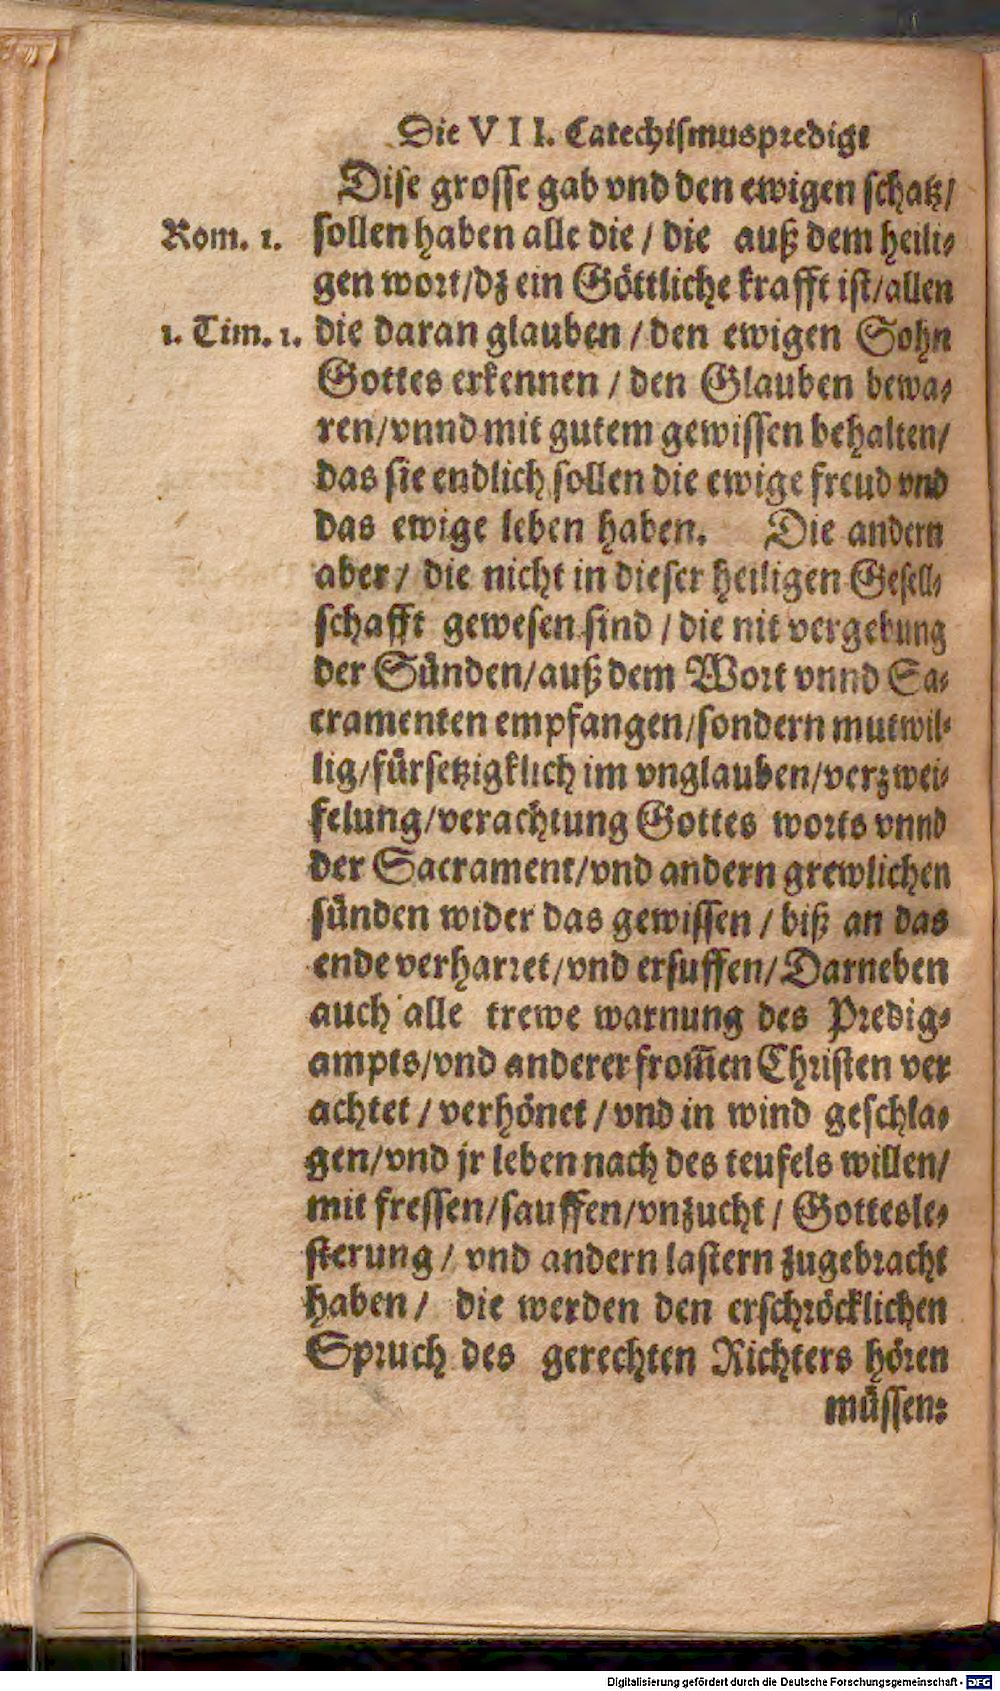 Die VII. Catechismuspredigt
Dise grosse gab vnd den ewigen schatz/
Rom. 1. sollen haben alle die / die auß dem heili⸗
gen wort/dz ein Göttliche krafft ist/allen
1. Tim. 1. die daran glauben / den ewigen Sohn
Gottes erkennen / den Glauben bewa⸗
ren/vnnd mit gutem gewissen behalten/
das sie endlich sollen die ewige freud vnd
das ewige leben haben. Die andern
aber / die nicht in dieser heiligen Gesell⸗
schafft gewesen sind / die nit vergebung
der Sünden/auß dem Wort vnnd Sa⸗
cramenten empfangen/sondern mutwil⸗
lig/fürsetzigklich im vnglauben/verzwei⸗
felung/verachtung Gottes worts vnnd
der Sacrament/vnd andern grewlichen
sünden wider das gewissen / biß an das
ende verharret/vnd ersuffen/Darneben
auch alle trewe warnung des Predig⸗
ampts/vnd anderer from̃en Christen ver
achtet / verhönet / vnd in wind geschla⸗
gen/vnd jr leben nach des teufels willen/
mit fressen/sauffen/vnzucht / Gottesle⸗
sterung / vnd andern lastern zugebracht
haben / die werden den erschröcklichen
Spruch des gerechten Richters hören
müssen:
Digitalisierung gefördert durch die Deutsche Forschungsgemeinschaft - DFG